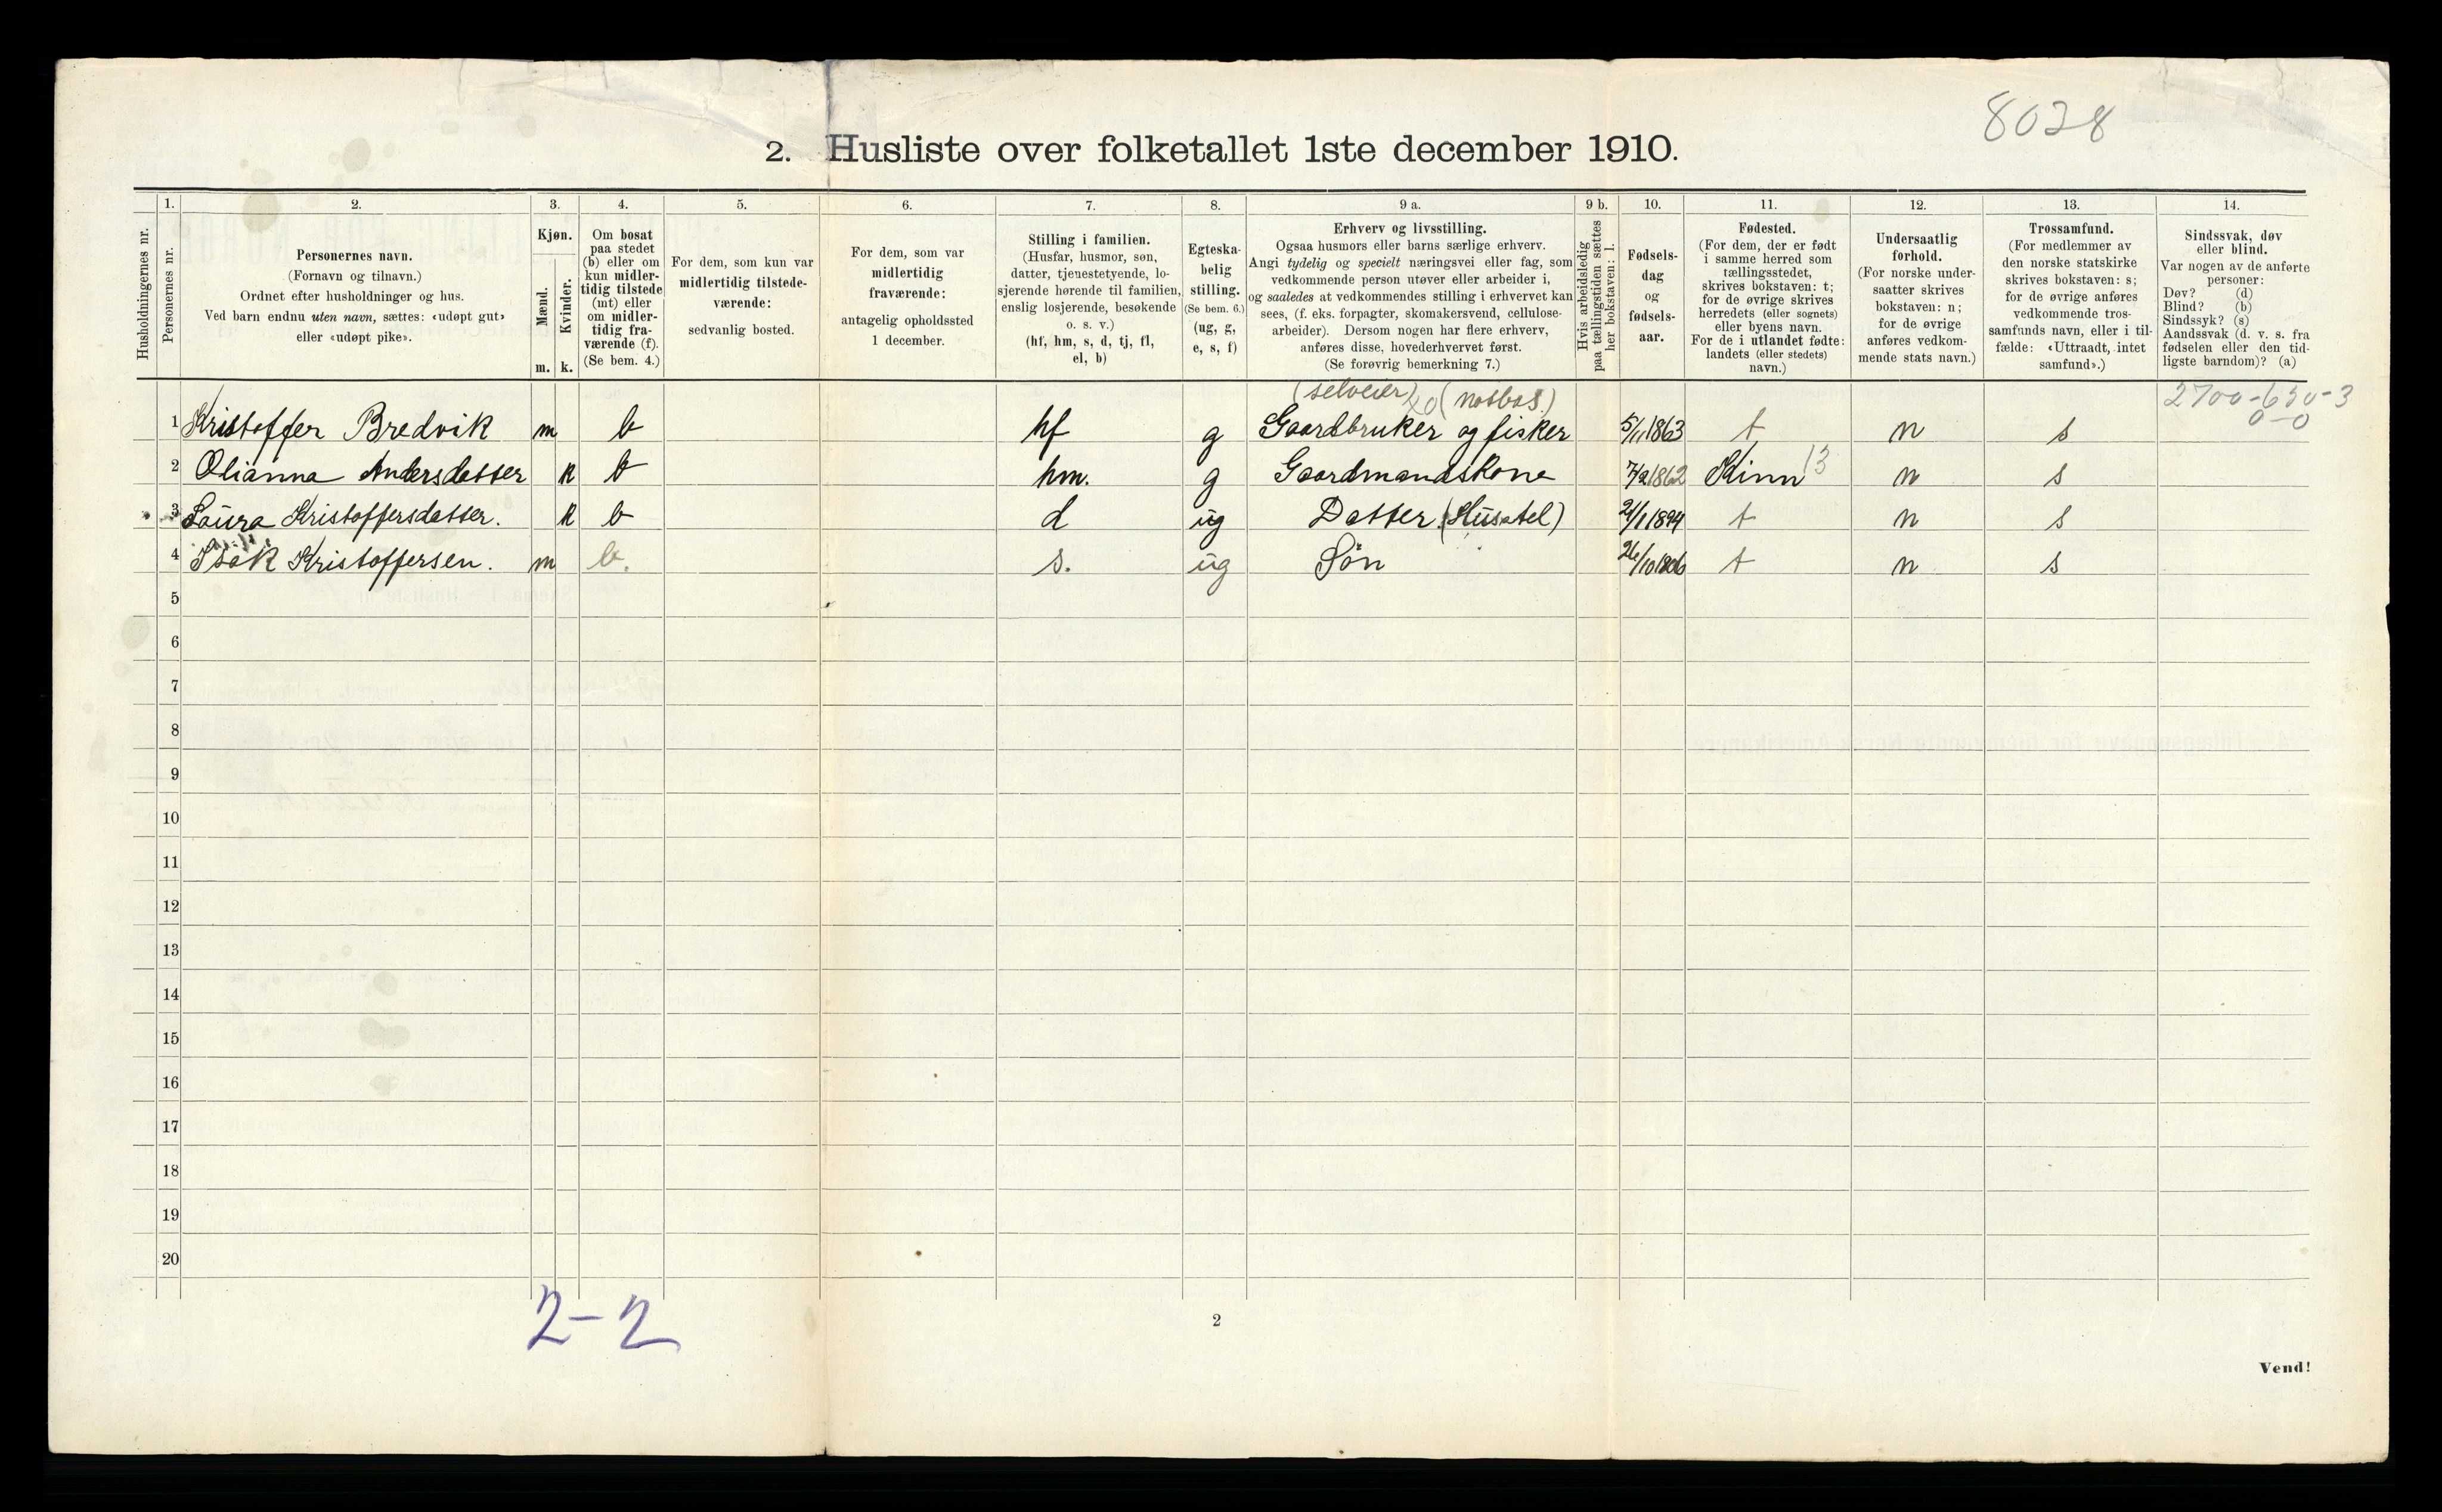 8028
2. Husliste over folketallet 1ste december 1910.
Husholdningernes nr.
1.
Personernes nr.
2.
Personernes navn.
(Fornavn og tilnavn.)
Ordnet efter husholdninger og hus.
Ved barn endnu uten navn, sættes: «udøpt gut»
eller «udøpt pike».
3.
Kjøn.
Mænd.
Kvinder.
m. k.
4.
Om bosat
paa stedet
(b) eller om
kun midler-
tidig tilstede
(mt) eller
om midler-
tidig fra-
værende (f).
(Se bem. 4.)
5.
For dem, som kun var
midlertidig tilstede-
værende:
sedvanlig bosted.
6.
For dem, som var
midlertidig
fraværende:
antagelig opholdssted
1 december.
7.
Stilling i familien.
(Husfar, husmor, søn,
datter, tjenestetyende, lo-
sjerende hørende til familien,
enslig losjerende, besøkende
o. s. v.)
(hf, hm, s, d, tj, fl,
el, b)
8.
Egteska-
belig
stilling.
(Se bem. 6.)
(ug, g,
e, s, f)
9 a.
Erhverv og livsstilling.
Ogsaa husmors eller barns særlige erhverv.
Angi tydelig og specielt næringsvei eller fag, som
vedkommende person utøver eller arbeider i,
og saaledes at vedkommendes stilling i erhvervet kan
sees, (f. eks. forpagter, skomakersvend, cellulose-
arbeider). Dersom nogen har flere erhverv,
anføres disse, hovederhvervet først.
(Se forøvrig bemerkning 7.)
9 b.
Hvis arbeidsledig
paa tællingstiden sættes
her bokstaven: l.
10.
Fødsels-
dag
og
fødsels-
aar.
11.
Fødested.
(For dem, der er født
i samme herred som
tællingsstedet,
skrives bokstaven: t;
for de øvrige skrives
herredets (eller sognets)
eller byens navn.
For de i utlandet fødte:
landets (eller stedets)
navn.)
12.
Undersaatlig
forhold.
(For norske under-
saatter skrives
bokstaven: n;
for de øvrige
anføres vedkom-
mende stats navn.)
13.
Trossamfund.
(For medlemmer av
den norske statskirke
skrives bokstaven: s;
for de øvrige anføres
vedkommende tros-
samfunds navn, eller i til-
fælde: «Uttraadt, intet
samfund».)
14.
Sindssvak, døv
eller blind.
Var nogen av de anførte
personer:
Døv? (d)
Blind? (b)
Sindssyk? (s)
Aandssvak (d. v. s. fra
fødselen eller den tid-
ligste barndom)? (a)
(selveier) (notbas.) 2700-650-3
0-0
1 Kristoffer Bredvik m b hf g Gaardbruker og fisker 5/11 1863 t n s
2 Olianna Andersdatter k b hm. g Gaardmandskone 7/2 1862 Kinn 13 n s
3 Laura Kristoffersdatter. k b d ug Datter (Husstel) 21/1 1894 t n s
4 Isak Kristoffersen. m b. s. ug Søn 26/10 1906 t n s
5
6
7
8
9
10
11
12
13
14
15
16
17
18
19
20
2-2
2
Vend!